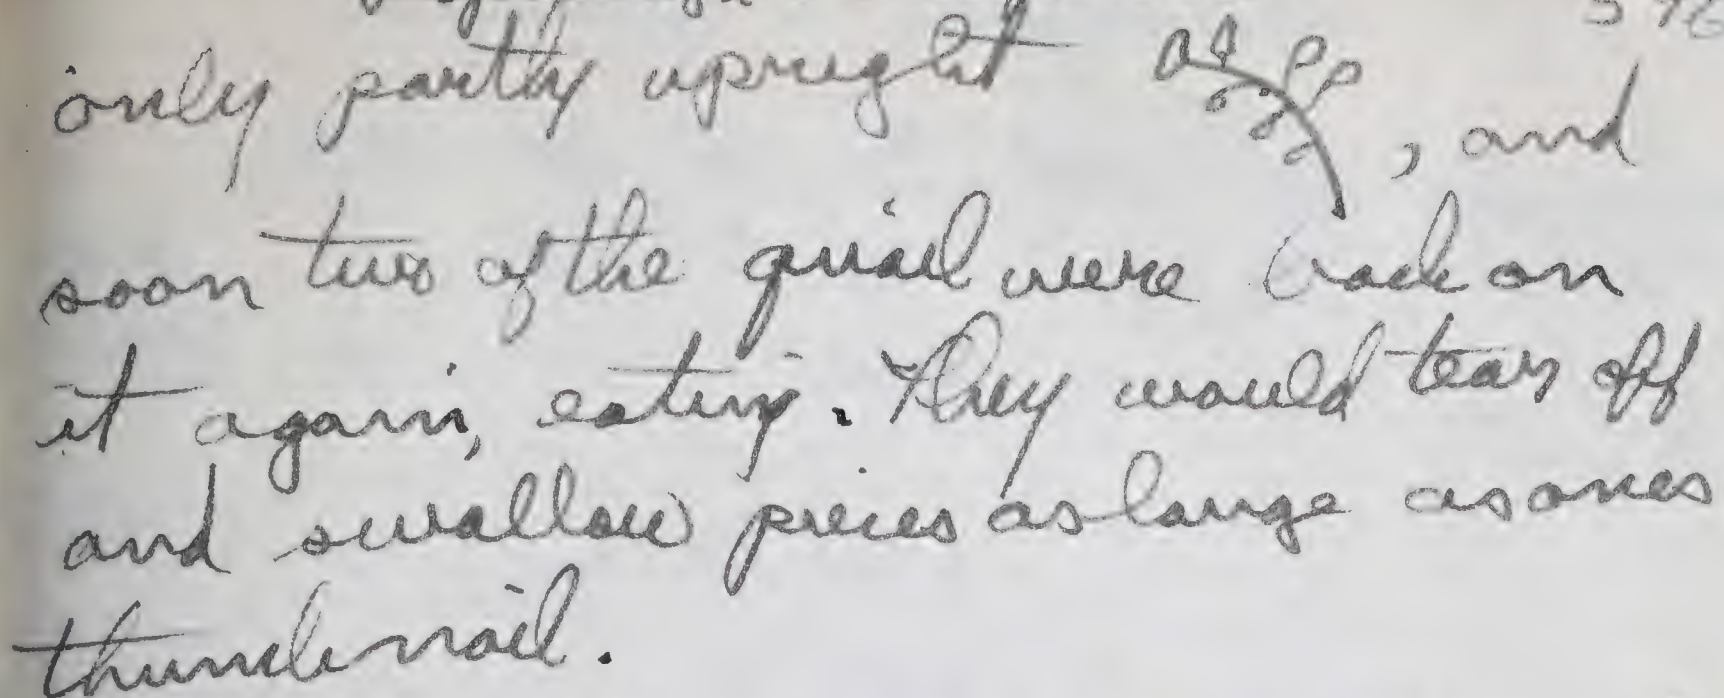 only partly upright , and
soon two of the quail were back on
it again, eating. They would tear off
and swallow pieces as large as ones
thumbnail.